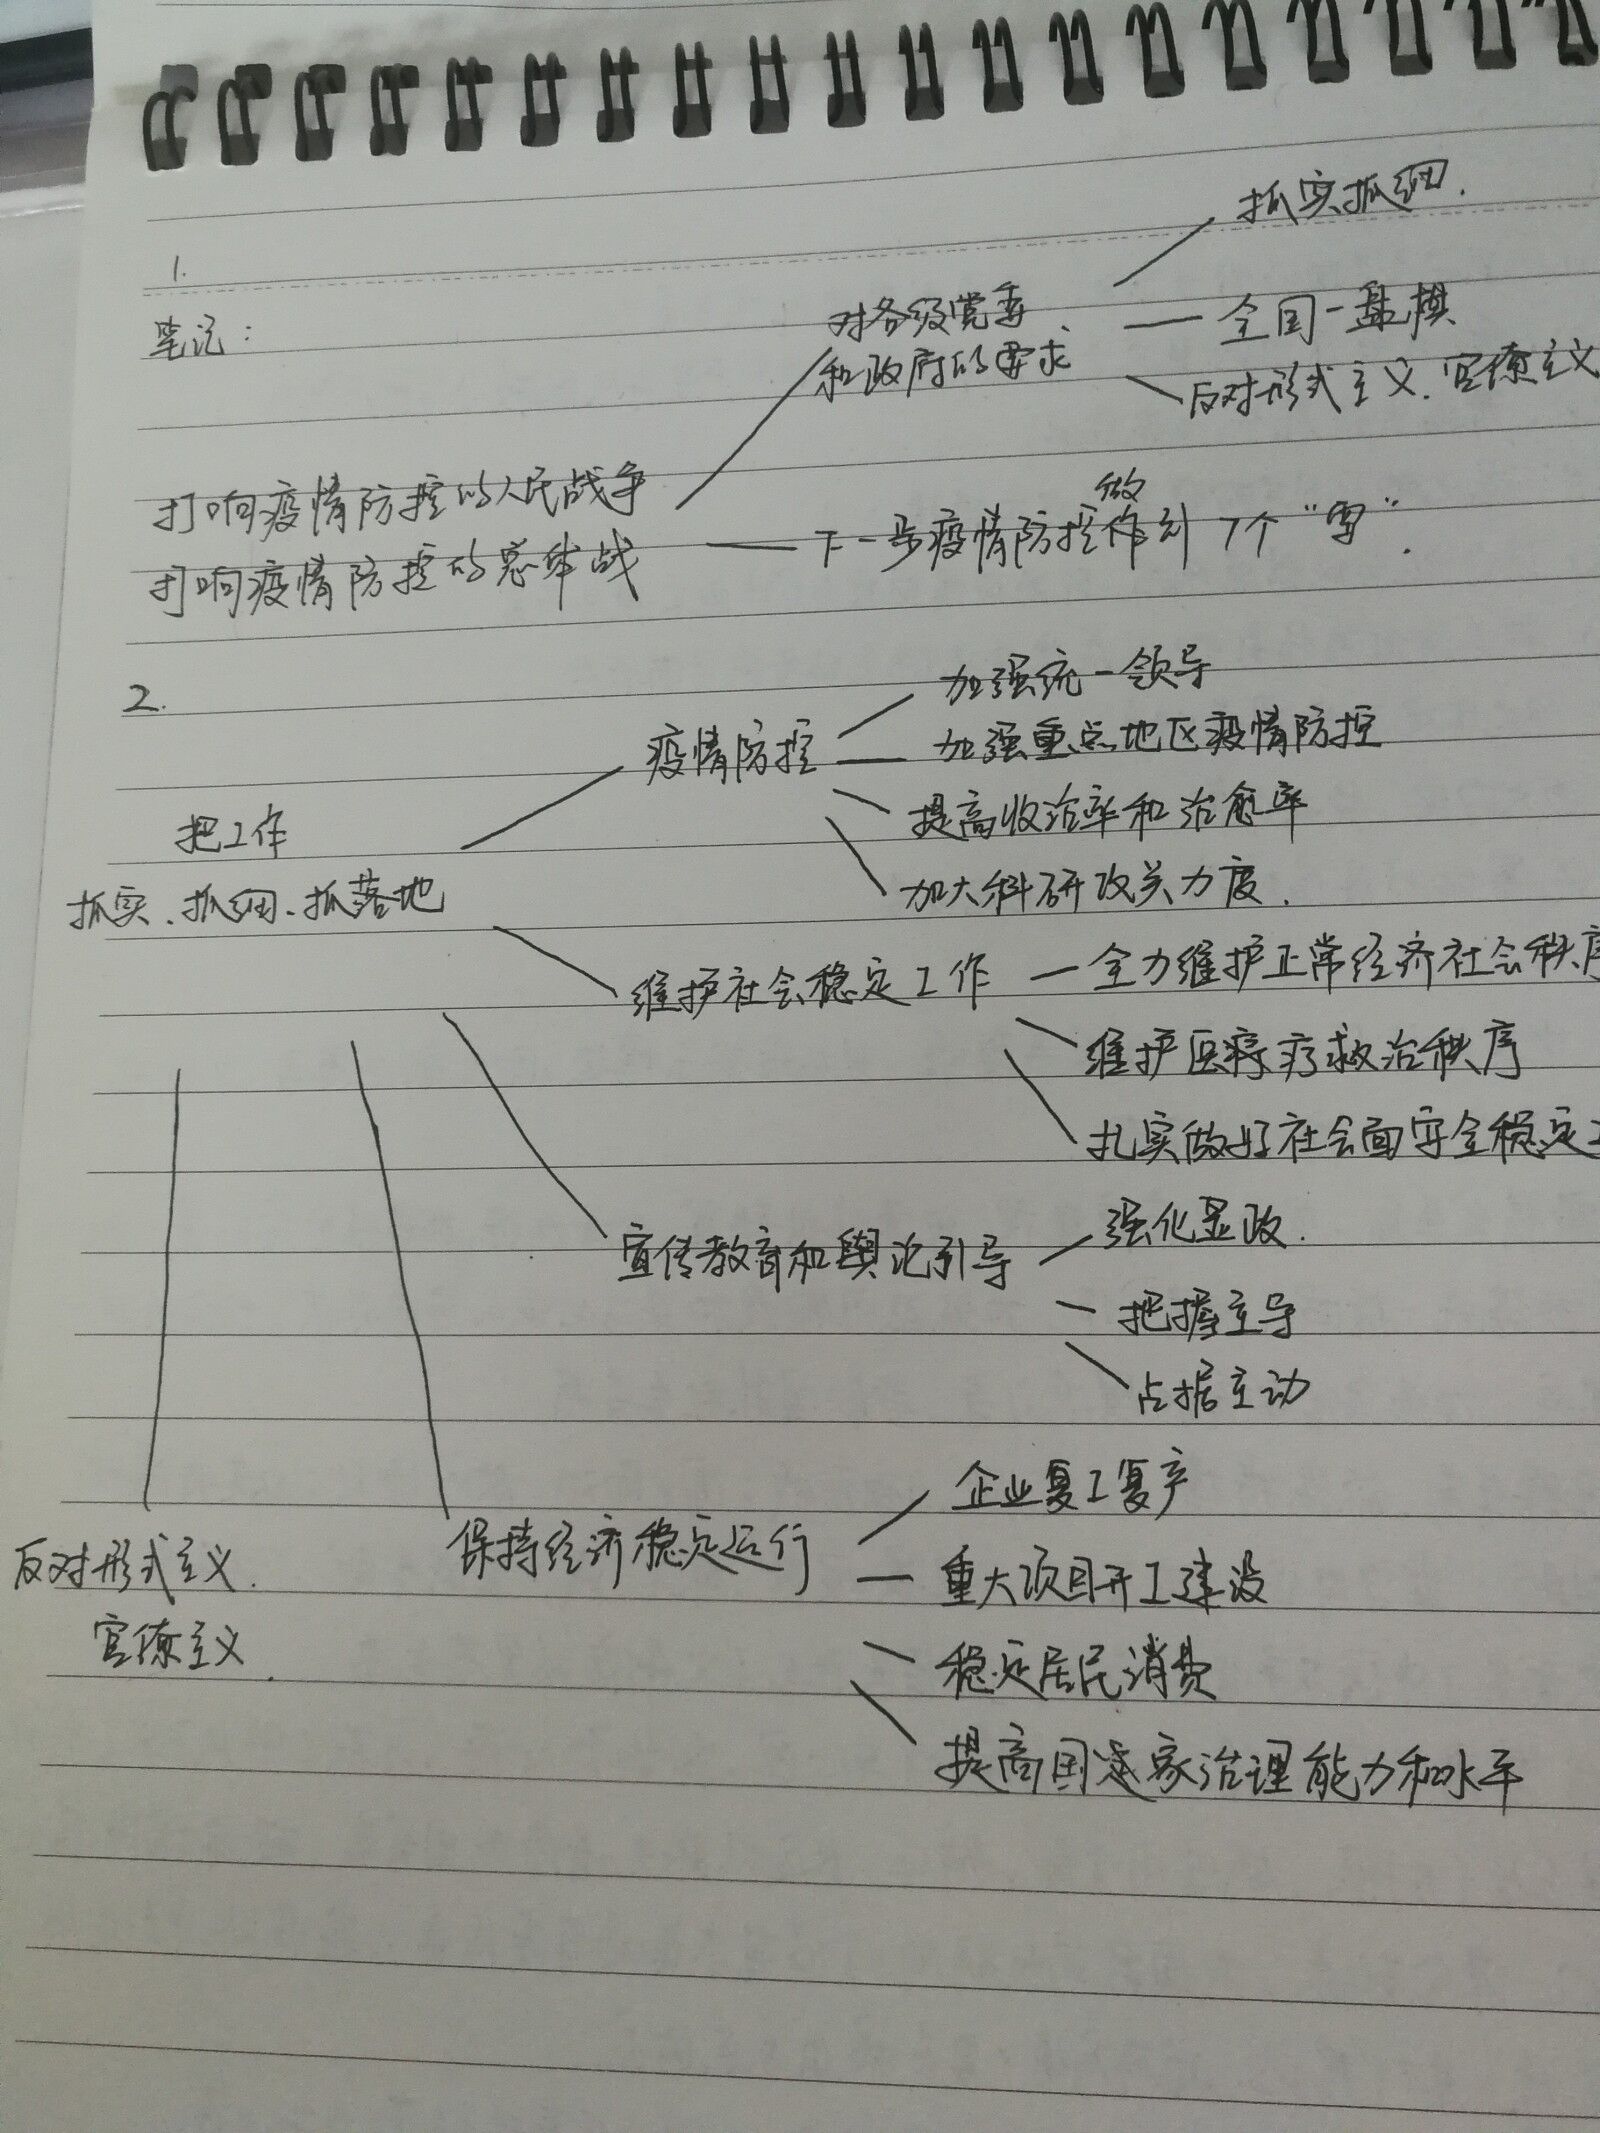 1.
笔记：
对各级党委
和政府的要求
抓实抓细.
全国一盘棋
反对形式主义.官僚主义
打响疫情防控的人民战争
打响疫情防控的总体战
下一步疫情防控做到7个“要”.
2.
把工作
抓实.抓细.抓落地
疫情防控
加强统一领导
加强重点地区疫情防控
提高收治率和治愈率
加大科研攻关力度.
维护社会稳定工作
全力维护正常经济社会秩序
维护医疗救治秩序
扎实做好社会面安全稳定
宣传教育和舆论引导
强化显政.
把握主导
占据主动
保持经济稳定运行
企业复工复产
重大项目开工建设
稳定居民消费
提高国家治理能力和水平
反对形式主义.
官僚主义.